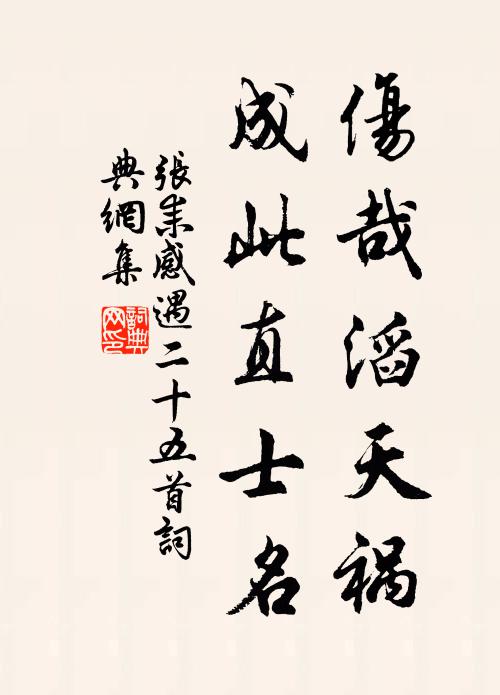 傷哉滔天祸
成此直士名
張耒感遇二十五首詞
典網集
詞典
网印